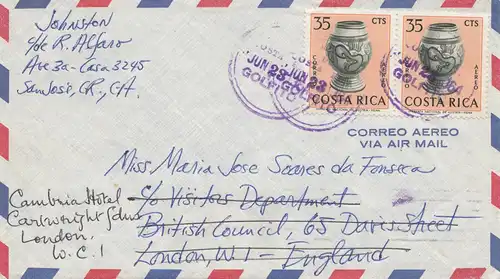 Johnston
c/o R. Alfaro
Ave 3a - Casa 3245
San José, CR, C.A.
35 CTS
CORREO AEREO
COSTA RICA
35 CTS
CORREO AEREO
COSTA RICA
JUN 23
GOLFITO
JUN 23
GOLFITO
JUN 2 64
GOLFITO
CORREO AEREO
VIA AIR MAIL
Miss Maria Jose Soares da Fonseca
c/o Visitors Department
British Council, 65 Davis Street
London, W.1 - England
Cambria Hotel
Cartwright Gdns
London.
W.C.1